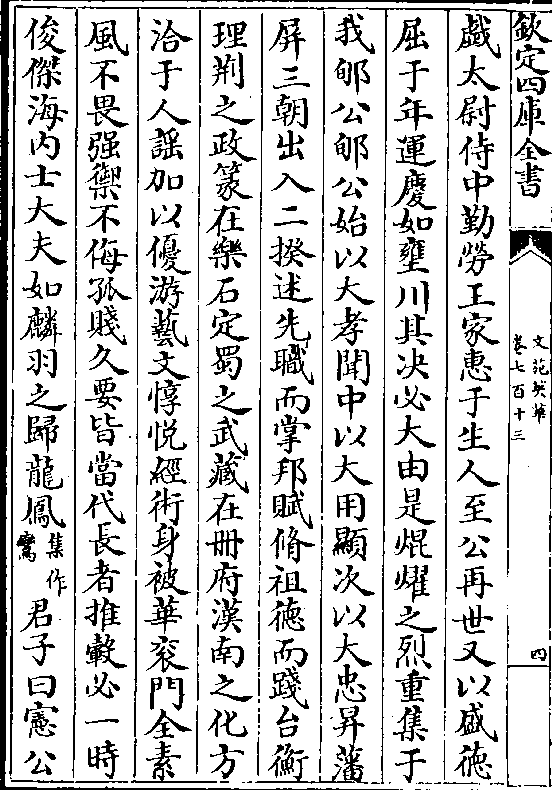 欽定四庫全書
文苑英華
卷七百十三
四
戯太尉侍中勤勞王家惠于生人至公再世又以盛徳
屈于年運慶如壅川其决必大由是焜燿之烈重集于
我郇公郇公始以大孝聞中以大用顯次以大忠昇藩
屏三朝出入二揆述先職而掌邦賦脩祖徳而踐台衡
理荆之政篆在樂石定蜀之武藏在冊府漢南之化方
洽于人謡加以優游藝文惇悦經術身被華衮門全素
風不畏强禦不侮孤賤久要皆當代長者推轂必一時
俊傑海内士大夫如麟羽之歸龍鳳集作鸞君子曰憲公